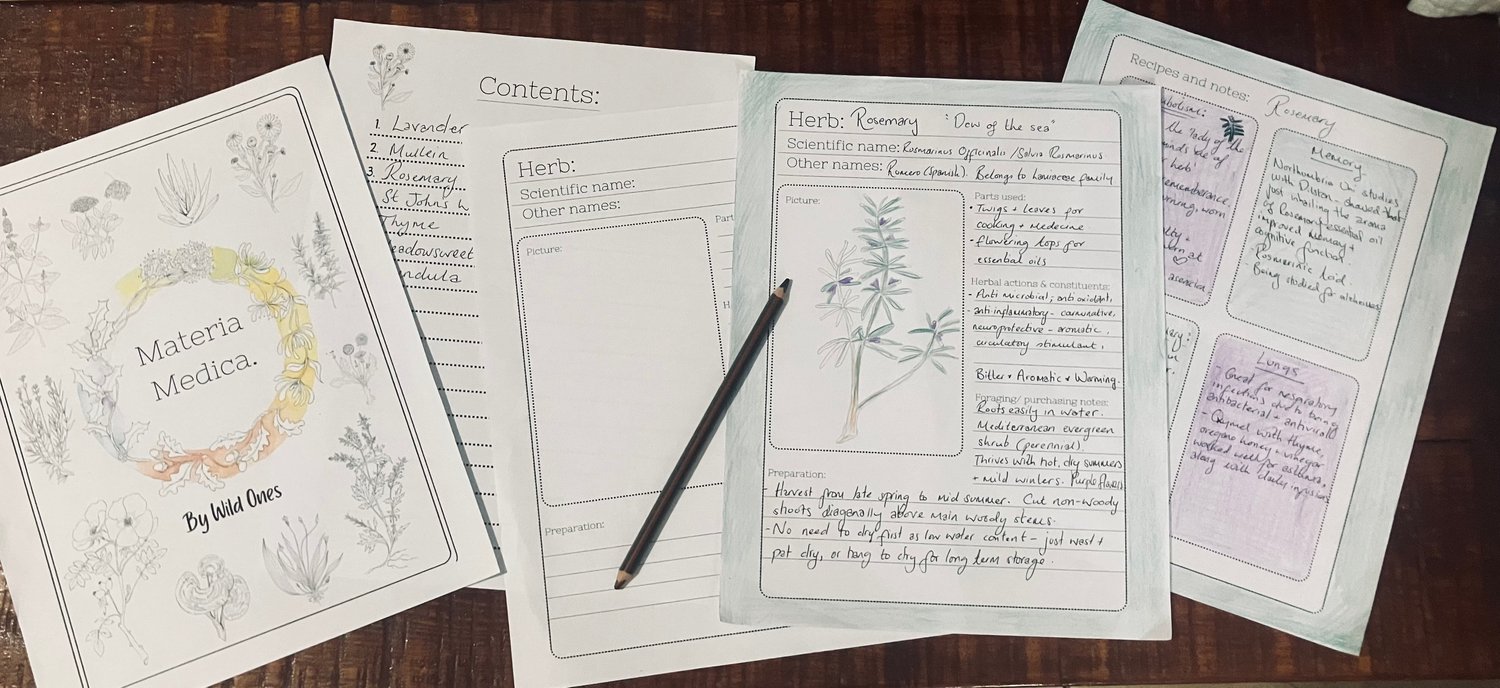 Materia
Medica.
By Wild Ones
Contents:
1. Lavander
2. Mullein
3. Rosemary
St Johns
Thyme
eadowsweet
ndula
Herb:
Scientific name:
Other names:
Picture:
Part
H
Preparation:
Herb: Rosemary "Dew of the sea"
Scientific name: Rosmarinus Officinalis / Salvia Rosmarinus
Other names: Romero (Spanish). Belongs to Lamiaceae family
Picture:
Parts used:
• Twigs + leaves for
cooking + Medecine
• flowering tops for
essential oils
Herbal actions & constituents:
- Anti microbial, anti oxidant,
anti inflammatory - carminative,
neuroprotective - aromatic,
circulatory stimulant,
Bitter + Aromatic + Warming.
Foraging/ purchasing notes:
Roots easily in water.
Mediterranean evergreen
shrub (perennial).
Thrives with hot, dry summers
+ mild winters. Purple flowers
Preparation:
Harvest from late spring to mid summer. Cut non-woody
shoots diagonally above main woody stems.
- No need to dry first as low water content - just wash +
pat dry, or hang to dry for long term storage.
Recipes and notes: Rosemary
bolism:
the lady of the
nds me of
herb!
rememberance,
worn
lty +
at
Memory
Northumbria Uni studies
with Dilston - showed that
just inhaling the aroma
of Rosemary essential oil
improved memory +
cognitive function.
Rosmarinic Acid.
Being studied for alzheimers
mary:
Lungs
- Great for respiratory
infections due to being
antibacterial + antiviral
- Oxymel with thyme,
oregano honey + vinegar
worked well for asthma,
along with daily infusions